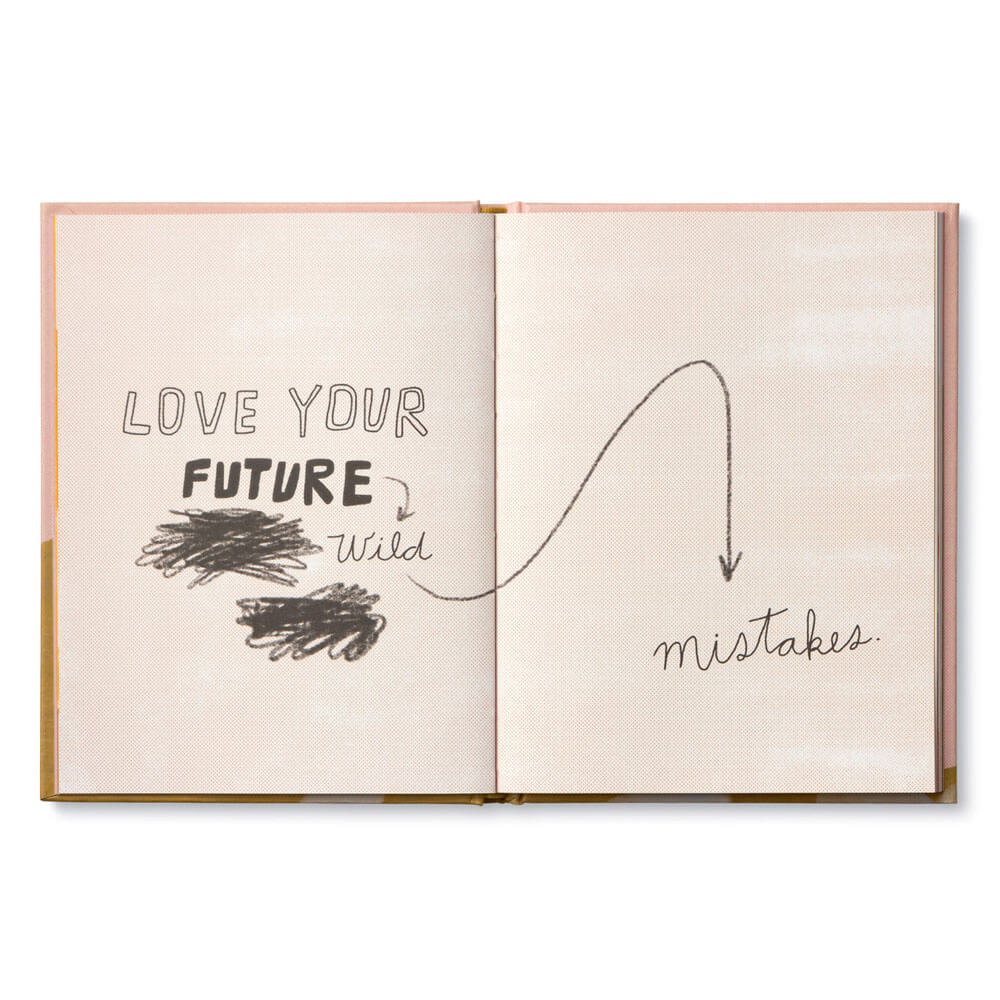 LOVE YOUR
FUTURE
Wild
mistakes.